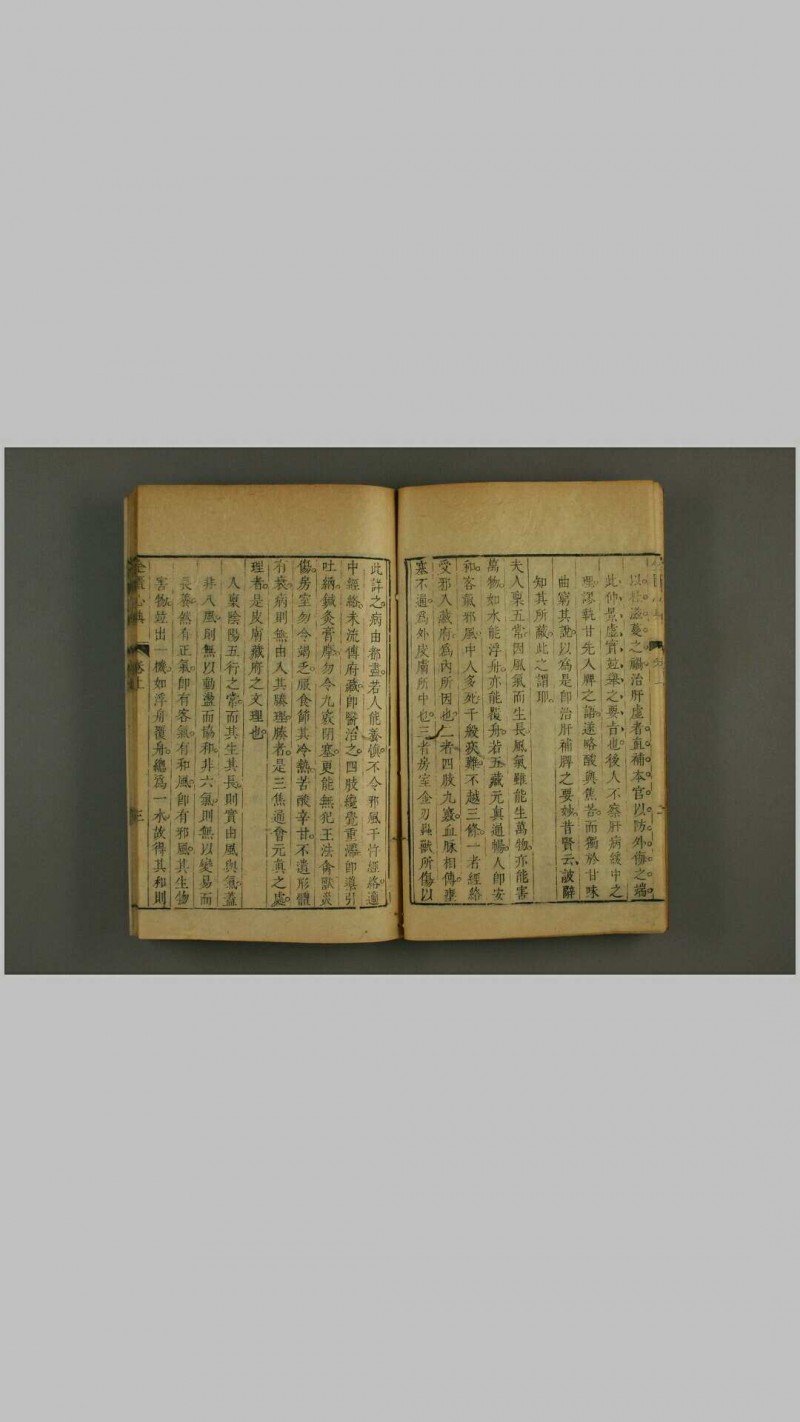 以杜滋蔓之禍治肝虛者直補本官以防外傷之端
此仲景虛實竝舉之要旨也後人不察肝病緩中之
理謬執甘先入脾之語遂略酸與焦苦而獨於甘味
曲窮其說以爲是卽治肝補脾之要妙昔賢云詖辭
知其所蔽此之謂耶
夫人稟五常因風氣而生長風氣雖能生萬物亦能害
萬物如水能浮舟亦能覆舟若五藏元真通暢人卽安
和客氣邪風中人多死千般疢難不越三條一者經絡
受邪入藏府爲內所因也二者四肢九竅血脉相傳壅
塞不通爲外皮膚所中也三者房室金刃蟲獸所傷以
此詳之病由都盡若人能養慎不令邪風干忤經絡適
中經絡未流傳府藏卽醫治之四肢纔覺重濇卽導引
吐納鍼灸膏摩勿令九竅閉塞更能無犯王法禽獸災
傷房室勿令竭乏服食節其冷熱苦酸辛甘不遺形體
有衰病則無由入其腠理腠者是三焦通會元真之處
理者是皮膚藏府之文理也
人稟陰陽五行之常而其生其長則實由風與氣蓋
非八風則無以動盪而協和非六氣則無以變易而
長養然有正氣卽有客氣有和風卽有邪風其生物
害物竝出一機如浮舟覆舟總爲一水故得其和則
金匱心典
卷上
三